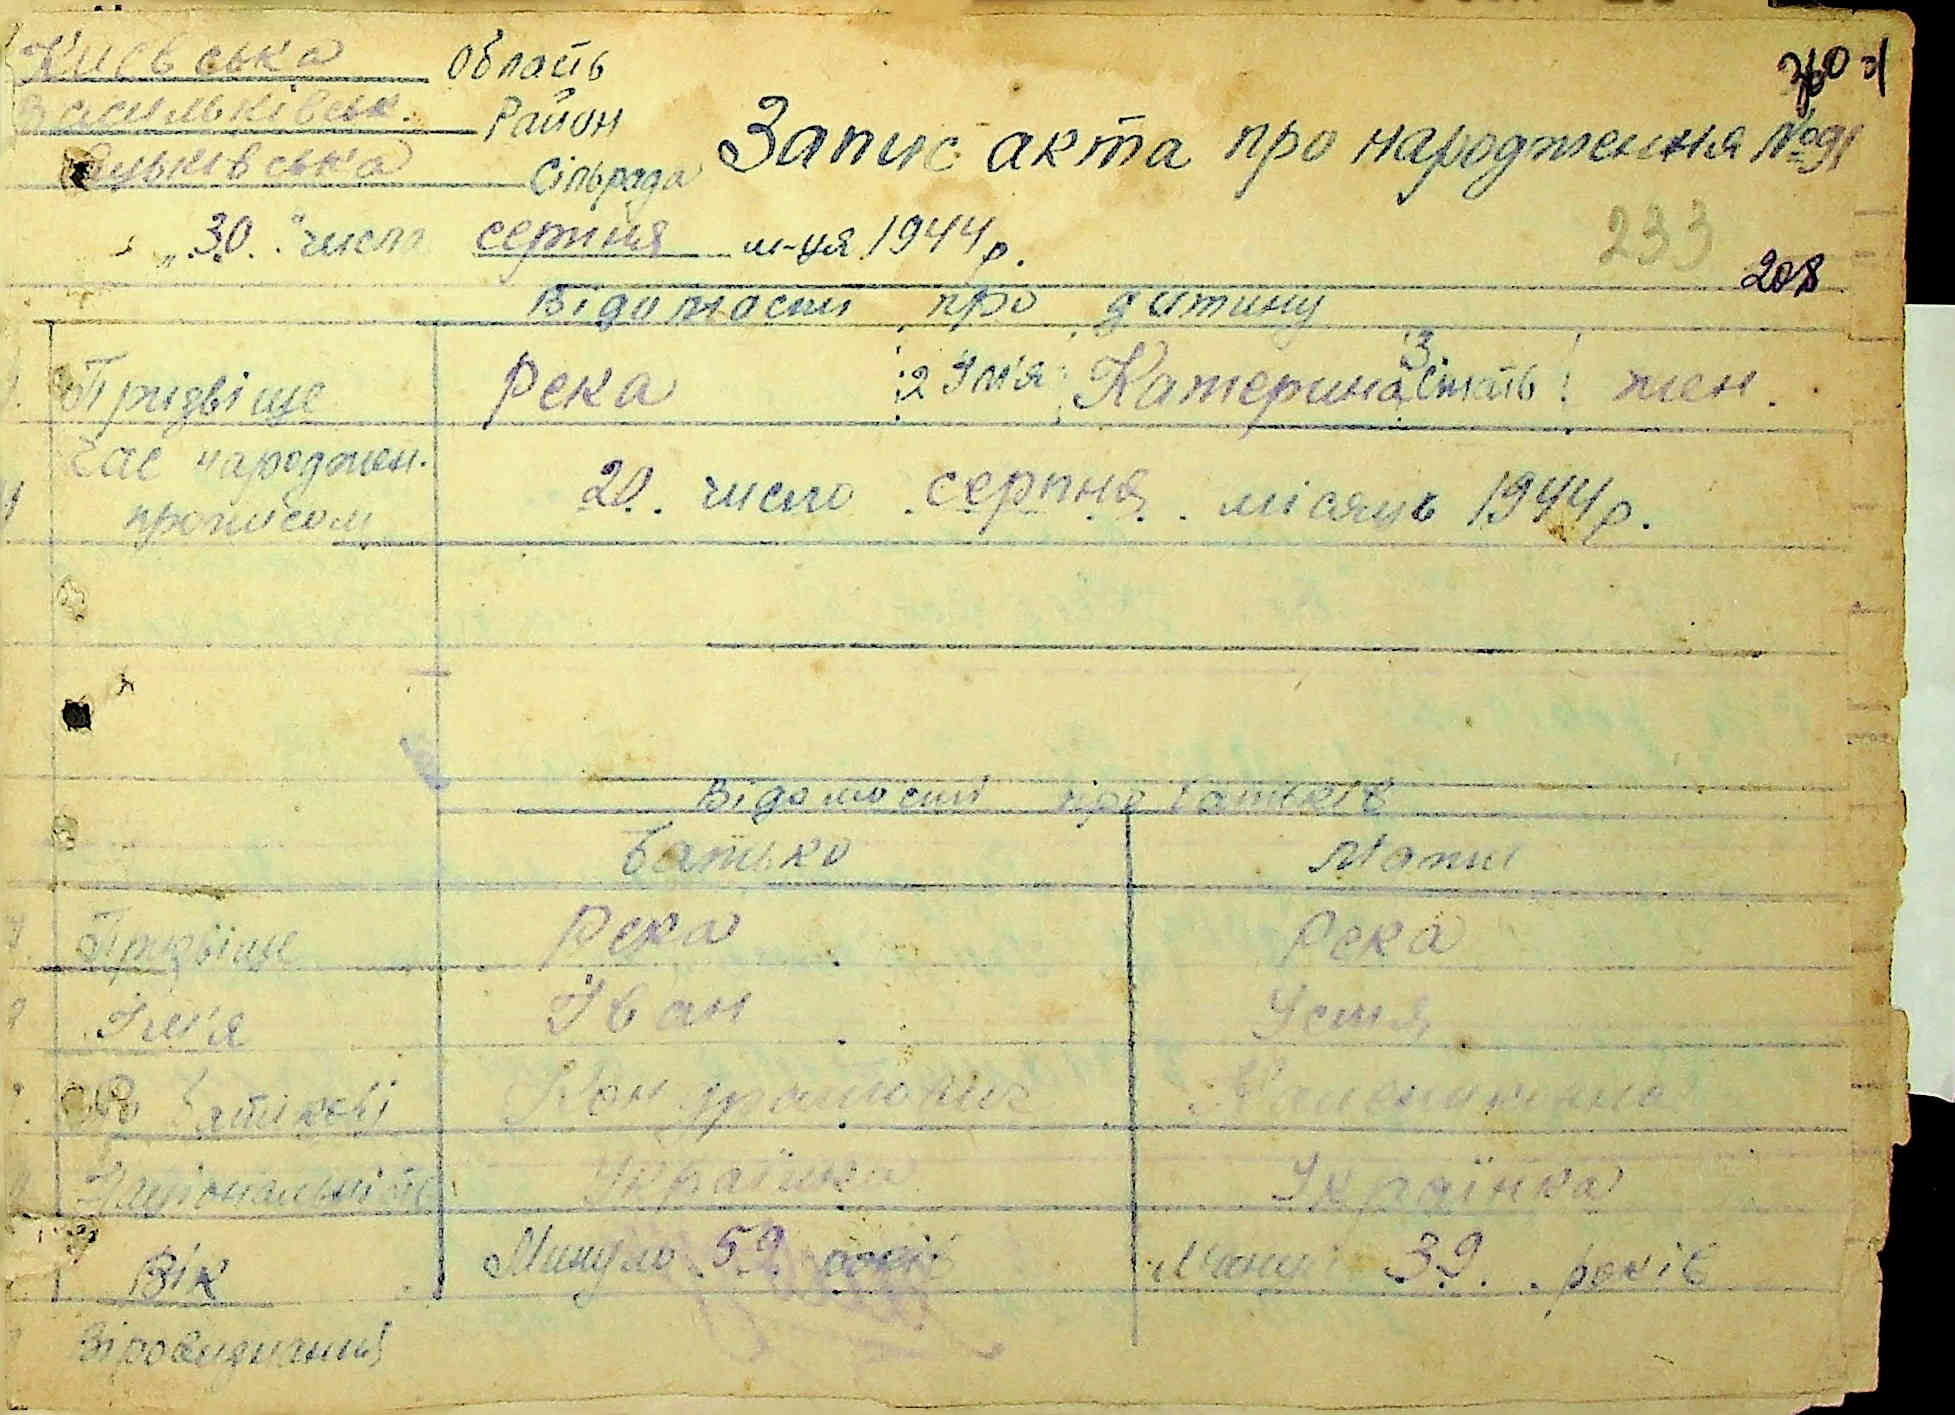 Київська область
Васильківськ. Район
Сільрада
Запис акта про народження №91
„30“ число серпня м-ця 1944 р.
233
208
Відомости про дитину
Призвіще Река 2 Ім'я Катерина 3 Стать жен.
Час народжен. прописом 20 число серпня місяць 1944 р.
Відомости про батьків
Батько Мати
Призвіще Река Река
Ім'я Іван Устя
По батькові Кондратович
Національність Українка
Вік Минуло 59 років Минуло 39 років
Віровизнання